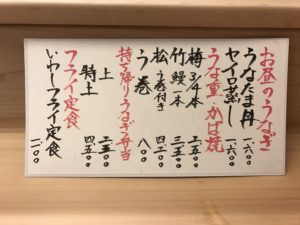 お昼のうなぎ
うなたま丼 一六〇〇
セイロ蒸し 一六〇〇
うな重・かば焼
梅 3/4本 二五五〇
竹 鰻一本 三一五〇
松 う巻付き 四二〇〇
う巻 八〇〇
持ち帰りうなぎ弁当
上 二五〇〇
特上 四五〇〇
フライ定食
いわしフライ定食 一一〇〇